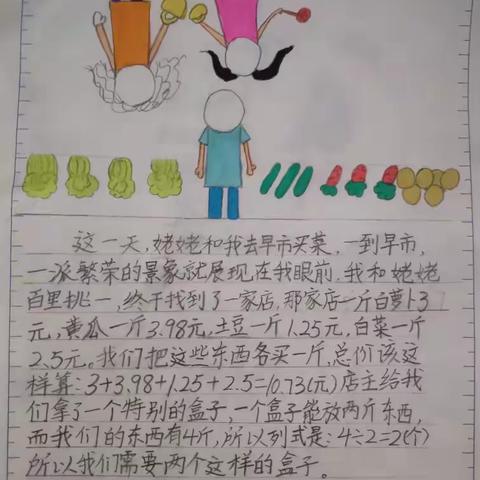 这一天,姥姥和我去早市买菜,一到早市,
一派繁荣的景象就展现在我眼前,我和姥姥
百里挑一,终于找到了一家店,那家店一斤白萝卜3
元,黄瓜一斤3.98元,土豆一斤1.25元,白菜一斤
2.5元。我们把这些东西各买一斤,总价该这
样算:3+3.98+1.25+2.5=10.73(元)店主给我
们拿了一个特别的盒子,一个盒子能放两斤东西,
而我们的东西有4斤,所以列式是:4÷2=2(个)
所以我们需要两个这样的盒子。